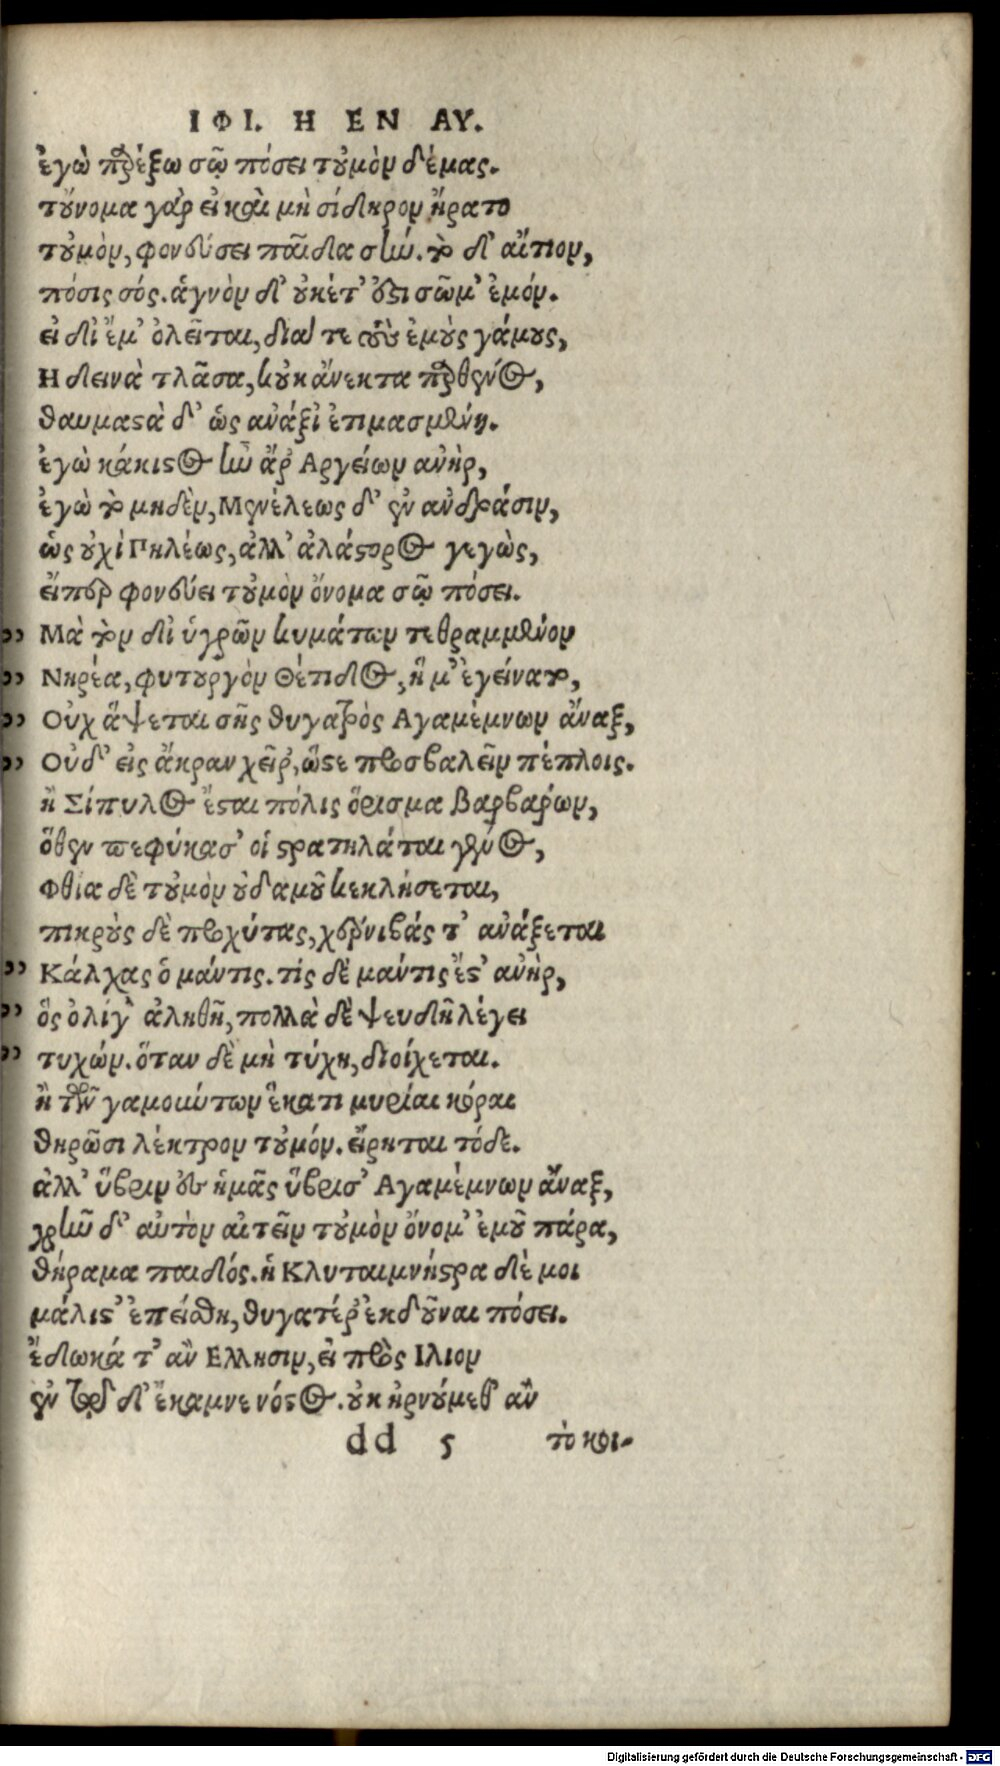 ΙΦΙ. Η ΕΝ ΑΥ.
ἐγὼ παρέξω σῷ πόσει τοὐμὸν δέμας.
τοὔνομα γὰρ εἰ καὶ μὴ σίδηρον ἤρατο
τοὐμὸν, φονεύσει παῖδα σήν. τὸ δ' αἴτιον,
πόσις σός. ἁγνὸν δ' οὐκέτ' ἐστὶ σῶμ' ἐμόν.
εἰ δι' ἔμ' ὀλεῖται, διά τε τοὺς ἐμοὺς γάμους,
Η δεινὰ τλᾶσα, κοὐκ ἄνεκτα παρθένος,
θαυμαστὰ δ' ὡς ἀνάξι' ἐτιμασμένη.
ἐγὼ κάκιστος ἦν ἄρ' Αργείων ἀνὴρ,
ἐγὼ τὸ μηδὲν, Μενέλεως δ' ἐν ἀνδράσιν,
ὡς οὐχὶ Πηλέως, ἀλλ' ἀλάστορος γεγὼς,
εἴπερ φονεύει τοὐμὸν ὄνομα σῷ πόσει.
„ Μὰ τὸν δι' ὑγρῶν κυμάτων τεθραμμένον
„ Νηρέα, φυτουργὸν Θέτιδος, ἥ μ' ἐγείνατο,
„ Οὐχ ἅψεται σῆς θυγατρὸς Αγαμέμνων ἄναξ,
„ Οὐδ' εἰς ἄκραν χεῖρ', ὥστε προσβαλεῖν πέπλοις.
ἢ Σίπυλος ἔσται πόλις ὅρισμα βαρβάρων,
ὅθεν πεφύκασ' οἱ στρατηλάται γένος,
Φθία δὲ τοὐμὸν οὐδαμοῦ κεκλήσεται,
πικροὺς δὲ προχύτας, χέρνιβάς τ' ἀνάξεται
„ Κάλχας ὁ μάντις. τίς δὲ μάντις ἔστ' ἀνὴρ,
„ ὃς ὀλίγ' ἀληθῆ, πολλὰ δὲ ψευδῆ λέγει
„ τυχών. ὅταν δὲ μὴ τύχη, διοίχεται.
ἢ τῶν γαμούντων ἕκατι μυρίαι κόραι
θηρῶσι λέκτρον τοὐμόν. εἴρηται τόδε.
ἀλλ' ὕβριν ἐς ἡμᾶς ὕβρισ' Αγαμέμνων ἄναξ,
χρῆν δ' αὐτὸν αἰτεῖν τοὐμὸν ὄνομ' ἐμοῦ πάρα,
θήραμα παιδός. ἡ Κλυταιμνήστρα δέ μοι
μάλιστ' ἐπείσθη, θυγατέρ' ἐκδοῦναι πόσει.
ἔδωκά τ' ἂν Ελλησιν, εἰ πρὸς Ιλιον
ἐν τῷδ' ἔκαμνε νόστος. οὐκ ἠρνούμεθ' ἂν
dd 5 τὸ κοι-
Digitalisierung gefördert durch die Deutsche Forschungsgemeinschaft - DFG